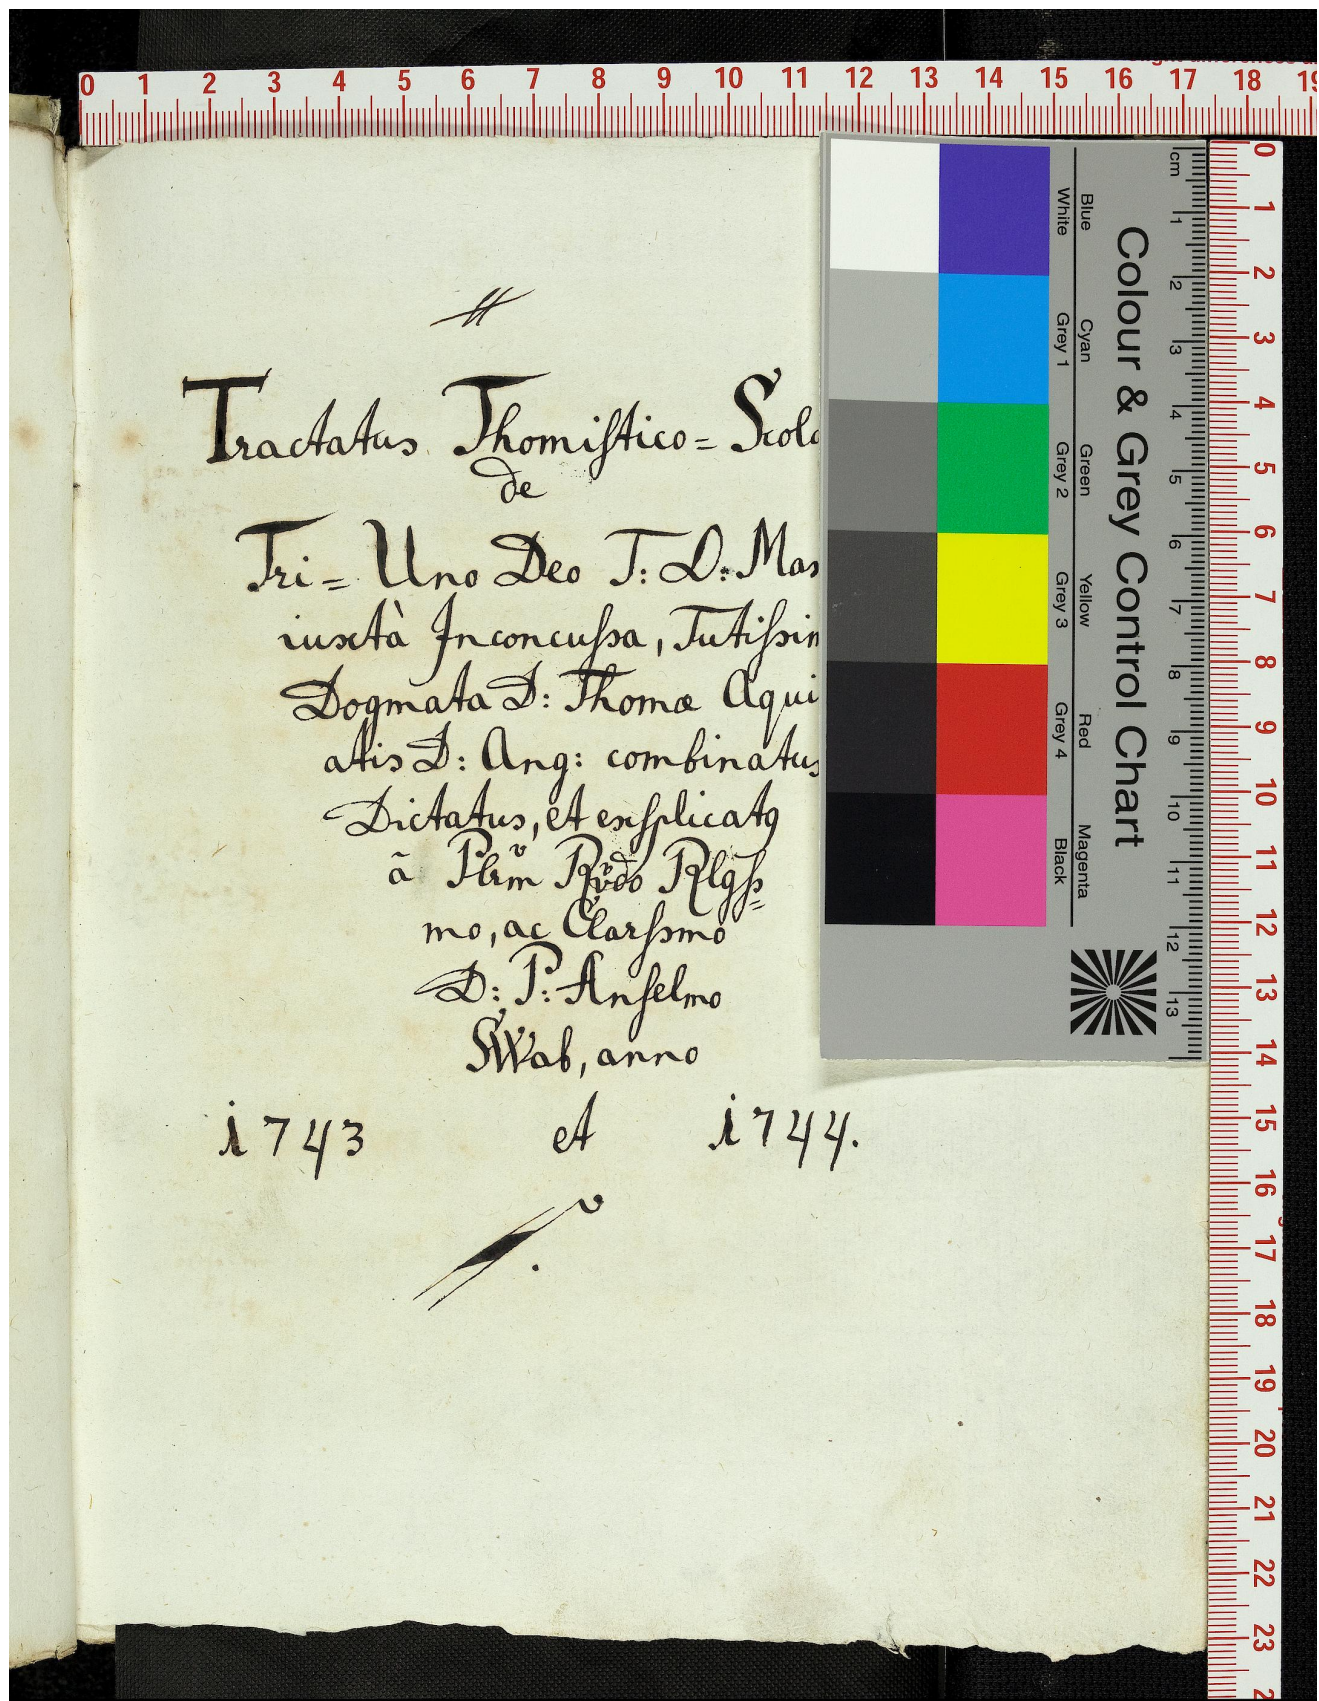 Tractatus Thomistico= Scola
de
Tri= Uno Deo T: O: Max
iuxtà Inconcussa, Tutissim
Dogmata D: Thomæ Aqui
atis D: Ang: combinatus
Dictatus, et explicatq
ā Plrm Rvdo Rlgss=
mo, ac Clarssmo
D: P: Anselmo
SWab, anno
1743 et 1744.
Colour & Grey Control Chart
Blue Cyan Green Yellow Red Magenta
White Grey 1 Grey 2 Grey 3 Grey 4 Black
cm 1 2 3 4 5 6 7 8 9 10 11 12 13
0 1 2 3 4 5 6 7 8 9 10 11 12 13 14 15 16 17 18 19
0 1 2 3 4 5 6 7 8 9 10 11 12 13 14 15 16 17 18 19 20 21 22 23